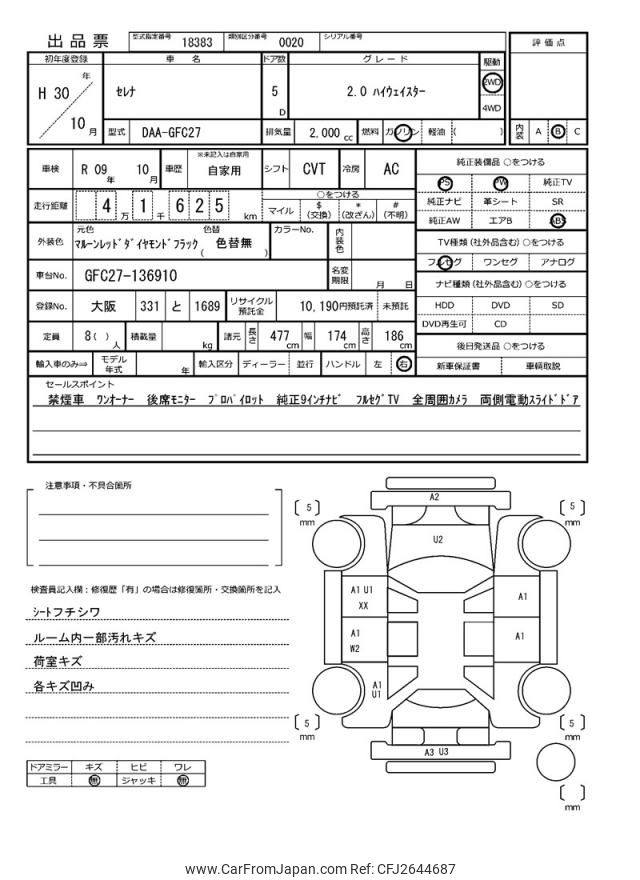 出品票 型式指定番号 18383 類別区分番号 0020 シリアル番号
評価点
初年度登録 車名 ドア数 グレード 駆動
H 30 年 10 月 セレナ 5 D 2.0 ハイウェイスター 2WD 4WD
型式 DAA-GFC27 排気量 2,000 cc 燃料 ガソリン 軽油 ( ) 内装 A B C
車検 R 09 年 10 月 車歴 ※未記入は自家用 自家用 シフト CVT 冷房 AC
走行距離 4 万 1 千 6 2 5 km ○をつける
マイル $ (交換) * (改ざん) # (不明)
外装色 元色 マルーンレッド゙ダイヤモンド゙ブラック 色替 ( 色替無 ) カラーNo. 内装色
車台No. GFC27-136910 名変期限 月 日
登録No. 大阪 331 と 1689 リサイクル預託金 10,190円預託済 未預託
定員 8( ) 人 積載量 kg 諸元 長さ 477 cm 幅 174 cm 高さ 186 cm
輸入車のみ⇒ モデル年式 年 輸入区分 ディーラー 並行 ハンドル 左 右
純正装備品 ○をつける
PS PW 純正TV
純正ナビ 革シート SR
純正AW エアB ABS
TV種類 (社外品含む) ○をつける
フルセグ ワンセグ アナログ
ナビ種類 (社外品含む) ○をつける
HDD DVD SD
DVD再生可 CD
後日発送品 ○をつける
新車保証書 車輌取説
セールスポイント
禁煙車 ワンオーナー 後席モニター プロパイロット 純正9インチナビ フルセグTV 全周囲カメラ 両側電動スライドドア
注意事項・不具合箇所
検査員記入欄：修復歴「有」の場合は修復箇所・交換箇所を記入
シートフチシワ
ルーム内一部汚れキズ
荷室キズ
各キズ凹み
ドアミラー キズ ヒビ ワレ
工具 無 ジャッキ 無
[ 5 ] mm
A2
[ 5 ] mm
U2
A1 U1
XX
A1
A1
W2
A1
A1
U1
[ 5 ] mm
[ 5 ] mm
A3 U3
[ ] mm
www.CarFromJapan.com Ref: CFJ2644687